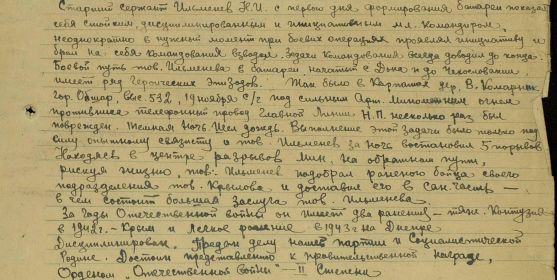 Старший сержант Ильменев Н.И. с первого дня формирования батареи показал
себя стойким, дисциплинированным и инициативным мл. командиром,
неоднократно в нужный момент при боевых операциях проявлял инициативу и
брал на себя командования взводом. Задачи командования всегда доводил до конца.
Боевой путь тов. Ильменева в батареи, начатый с Дона и до Чехословакии
имеет ряд героических эпизодов. Так было в Карпатах дер. В. Комарник
гор. Обшар, выс. 532, 19 ноября с/г под сильным арт. минометным огнем
противника телефонный провод главной линии Н.П. несколько раз был
поврежден. Темная ночь шел дождь. Выполнение этой задачи было только под
силу опытному связисту и тов Ильменев за ночь востановил 5 порывов
Находясь в центре разрывов мин, на обратном пути,
рискуя жизнью, тов. Ильменев подобрал раненого бойца своего
подразделения тов. Крылова и доставил его в сан. часть —
в чем состоит большая заслуга тов. Ильменева.
За годы Отечественной войны он имеет два ранения — тяж. контузия
в 1942г. — Крым и легкое ранение в 1943г на Днепре
Дисциплинирован. Предан делу нашей партии и Социалистической
Родине. Достоин представления к правительственной награде,
Орденом "Отечественной войны" — II степени